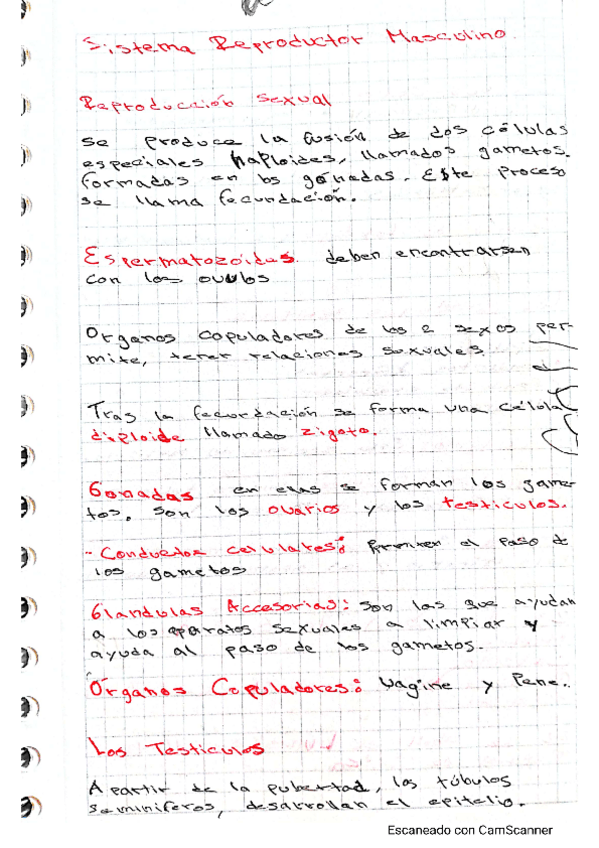 Sistema Reproductor Masculino
Reproducción sexual
Se produce la fusión de dos células
especiales haploides, llamados gametos.
formadas en las gónadas. Este proceso
se llama fecundación.
Espermatozoides deben encontrarsen
con los ovulos
Organos copuladores de los 2 sexos per-
mite, tener relaciones sexuales
Tras la fecundación se forma una célula
disploide llamado zigoto.
Gonadas en ellas se forman los game-
tos. son los ovarios y los testiculos.
- Conductos celulares: permiten el paso de
los gametos
Glandulas Accesorias: son las que ayudan
a los aparatos sexuales a limpiar y
ayuda al paso de los gametos.
Órganos Copuladores: Vagine y Pene.
Los Testiculos
A partir de la pubertad, los túbulos
seminiferos, desarrollan el epitelio.
Escaneado con CamScanner